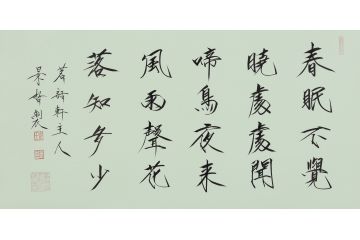 春眠不覺
曉處處聞
啼鳥夜来
風雨聲花
落知多少
主人